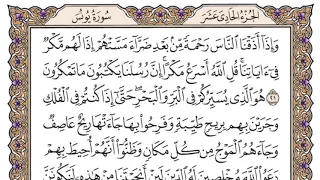 الجزء الحادى عشر سورة يونس
وَإِذَآ أَذَقْنَا ٱلنَّاسَ رَحْمَةً مِّنۢ بَعْدِ ضَرَّآءَ مَسَّتْهُمْ إِذَا لَهُم مَّكْرٌ
فِىٓ ءَايَاتِنَا قُلِ ٱللَّهُ أَسْرَعُ مَكْرًا إِنَّ رُسُلَنَا يَكْتُبُونَ مَا تَمْكُرُونَ
٢١ هُوَ ٱلَّذِى يُسَيِّرُكُمْ فِى ٱلْبَرِّ وَٱلْبَحْرِ حَتَّىٰٓ إِذَا كُنتُمْ فِى ٱلْفُلْكِ
وَجَرَيْنَ بِهِم بِرِيحٍ طَيِّبَةٍ وَفَرِحُوا۟ بِهَا جَآءَتْهَا رِيحٌ عَاصِفٌ
وَجَآءَهُمُ ٱلْمَوْجُ مِن كُلِّ مَكَانٍ وَظَنُّوٓا۟ أَنَّهُمْ أُحِيطَ بِهِمْ
دَعَوُا۟ ٱللَّهَ مُخْلِصِينَ لَهُ ٱلدِّينَ لَئِنْ أَنجَيْتَنَا مِنْ هَٰذِهِۦ لَنَكُونَنَّ